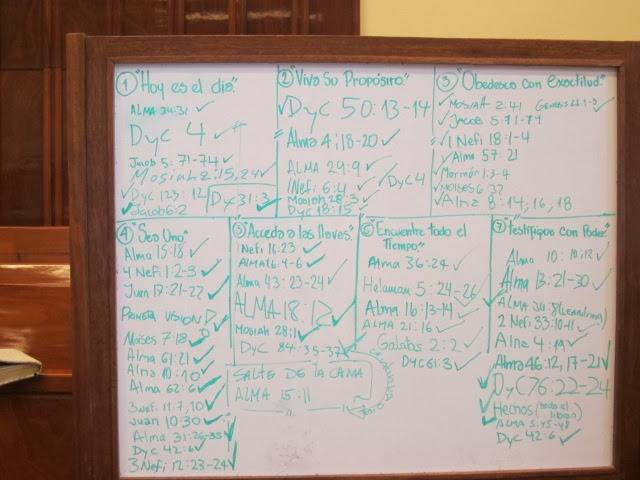 ① "Hoy es el día."
ALMA 34:31 ✓
DyC 4 ✓
Jacob 5: 71-74 ✓
Mosiah 2:15,24 ✓
✓ DyC 123: 12
DyC 31:3 ✓
✓ Jacob 6:2
② "Viva Su Propósito."
✓ DyC 50:13-14
Alma 4:18-20 ✓
ALMA 29:9 ✓
1 Nefi 6:4 ✓
DyC 4
Mosiah 28:3 ✓
DyC 18:15 ✓
③ "Obedesco con Exactitud."
✓ MOSIAH 2:41
Genesis 22:1-3 ✓
✓ Jacob 5:71-74
✓ 1 Nefi 18:1-4
✓ Alma 57:21
✓ Mormón 1:3-4
✓ MOISES 6:32
✓ Alma 8:14,16,18
④ "Seo Uno."
Alma 15:18 ✓
4 Nefi 1:2-3 ✓
Juan 17:21-22 ✓
PRIMERA VISION
Moises 7:18 ✓
Alma 61:21 ✓
Alma 10:10 ✓
Alma 62:6 ✓
3 Nefi 11:7,10 ✓
Juan 10:30 ✓
Alma 31:26-35 ✓
DyC 42:6 ✓
3 Nefi 12:23-24 ✓
⑤ "Acceda a las llaves."
1 Nefi 16:23 ✓
ALMA 16:4-6 ✓
Alma 43:23-24 ✓
ALMA 18:12 ✓
MOSIAH 28:1 ✓
DyC 84:35-37 ✓
SALTE DE la CAMA
ALMA 15:11
⑥ "Encuentre todo el
Tiempo."
Alma 36:24 ✓
Helaman 5:24-26
Alma 16:13-14 ✓
ALMA 21:16 ✓
Galatas 2:2 ✓
DYC 61:3 ✓
⑦ "Testifiquo con Poder."
Alma 10:10,12 ✓
Alma 13:21-30 ✓
2 Nefi 33:10-11 ✓
Alma 4:19 ✓
Alma 46:12,17-21 ✓
✓ DyC 76:22-24
✓ Hechos (todo el
libro)
✓ ALMA 5:45-48
DyC 42:6 ✓